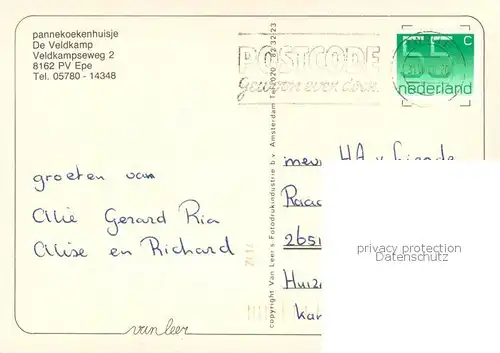 pannekoekenhuisje
De Veldkamp
Veldkampseweg 2
8162 PV Epe
Tel. 05780 - 14348
POSTCODE
gewoon even doen.
55 c
nederland
groeten van
Alie Gerard Ria
Alise en Richard
copyright Van Leer's Fotodrukindustrie b.v. Amsterdam Tel 020 - 82 32 23
mevr
2651
privacy protection
Datenschutz
van leer